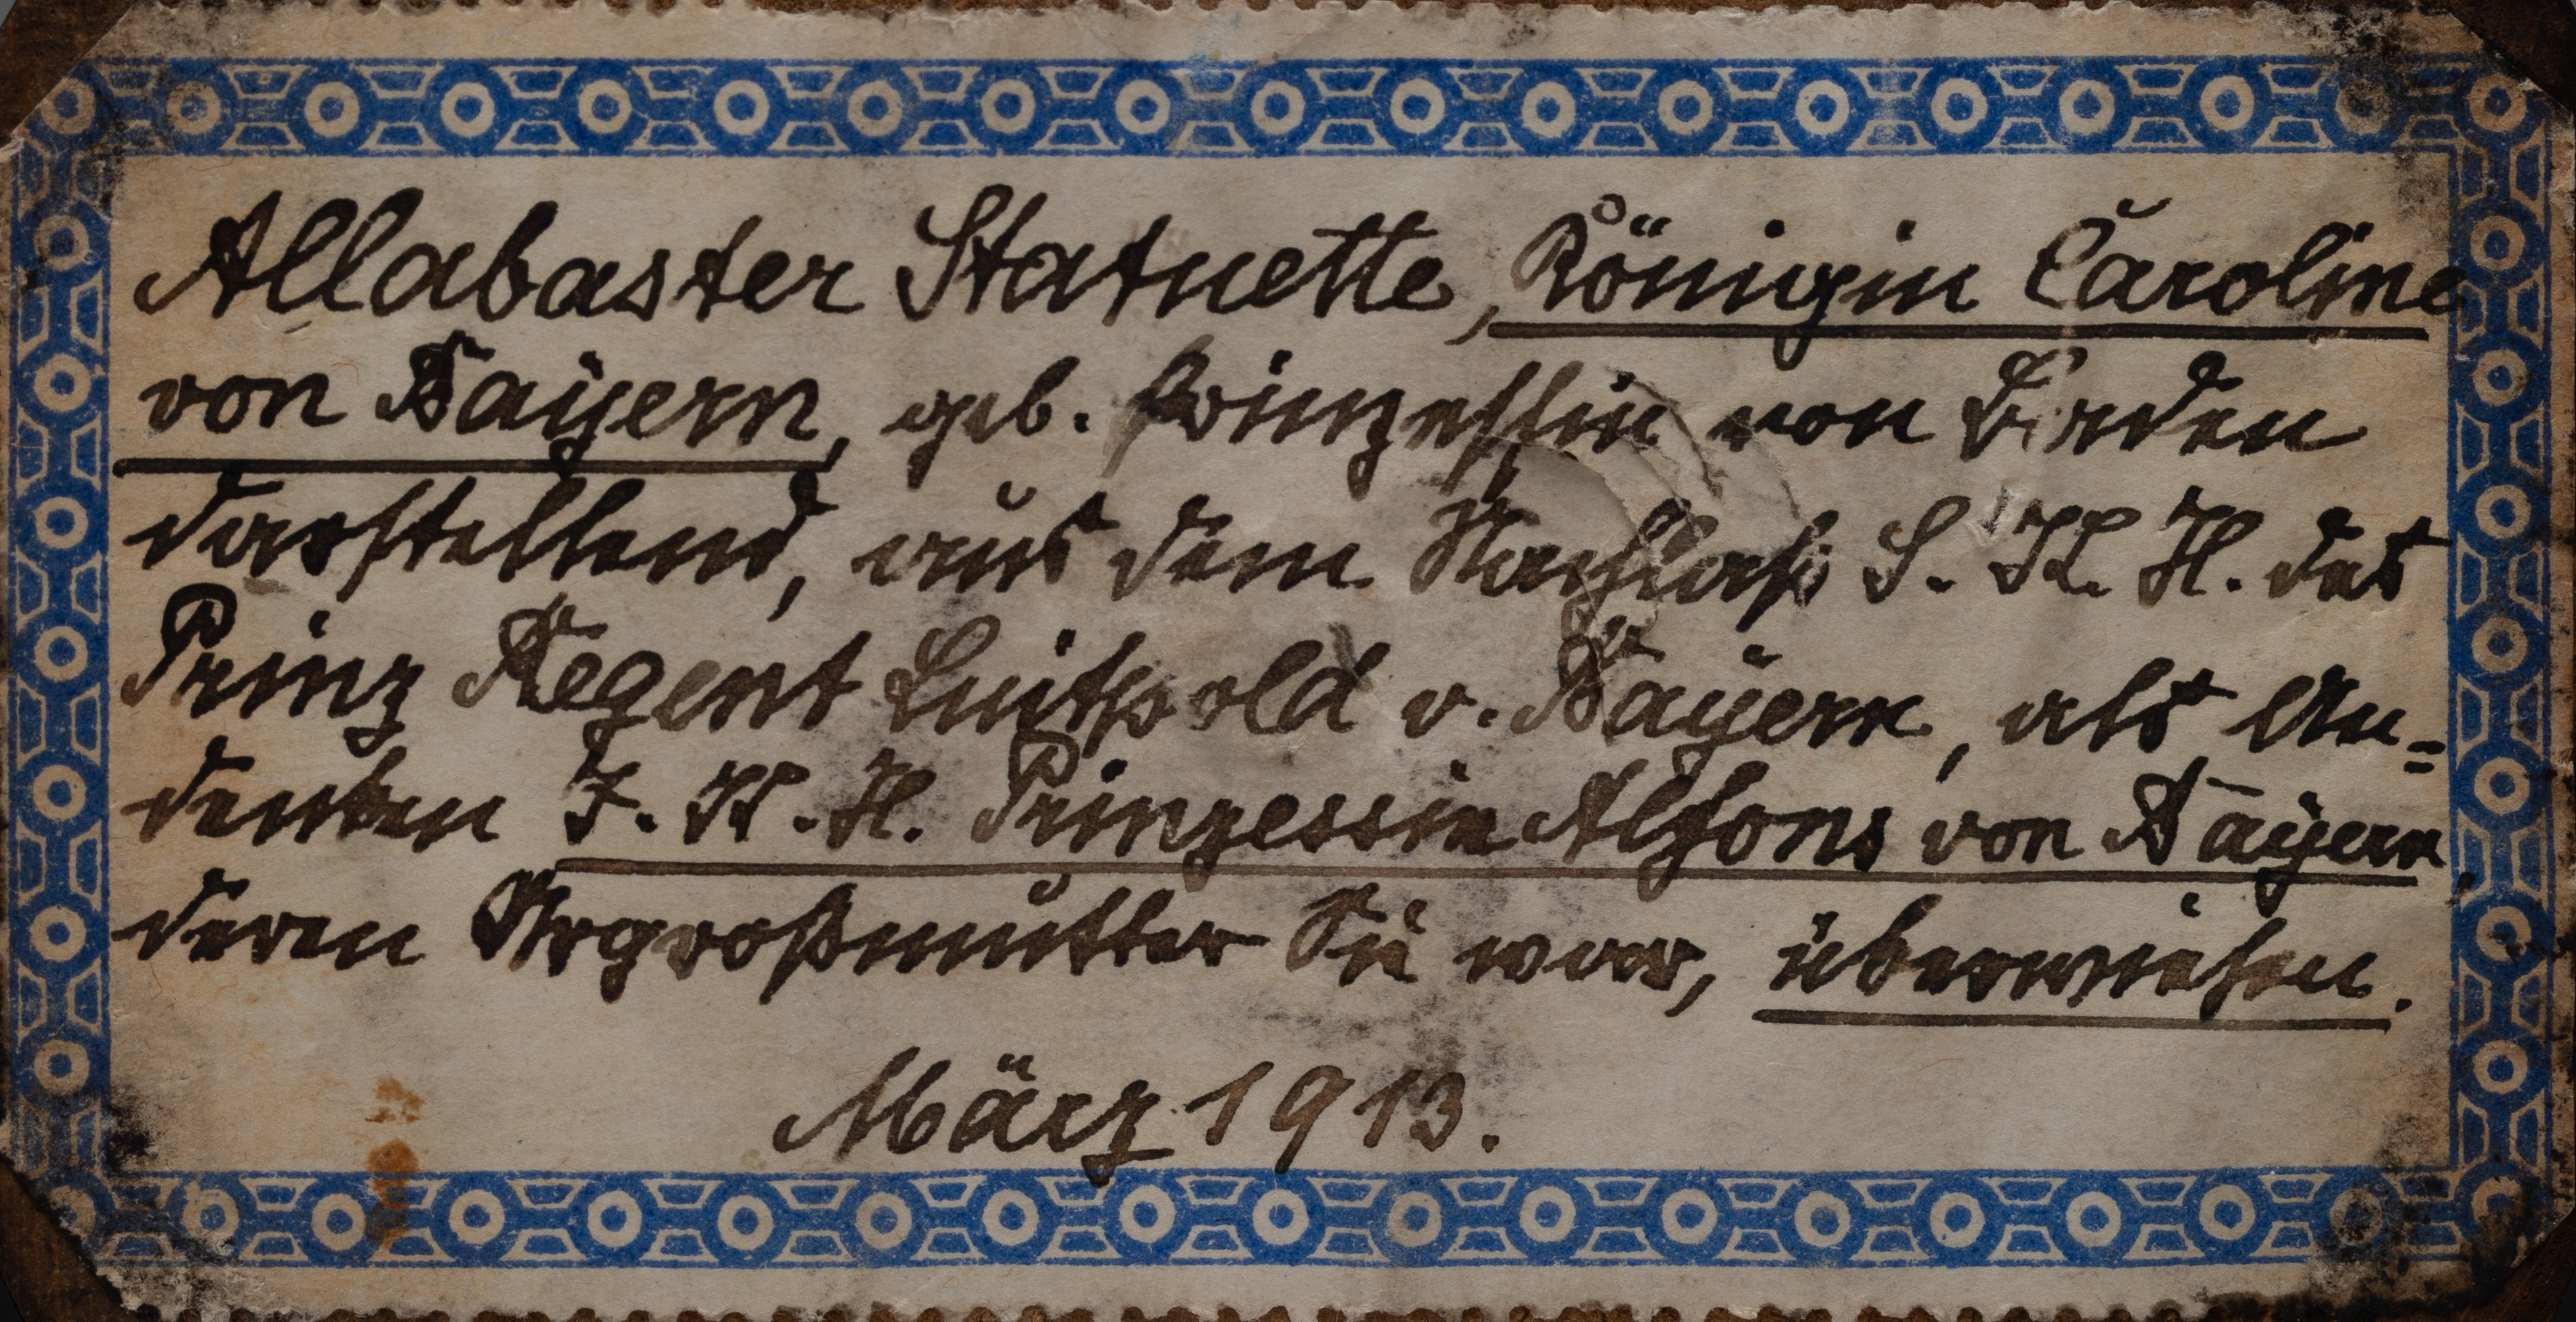 Allabaster Statuette, Königin Caroline
von Bayern, geb. Prinzessin von Baden
darstellend, aus dem Nachlaß S. K. H. des
Prinz Regent Luitpold v. Bayern, als An=
denken I. K. H. Prinzessin Alfons von Bayern,
deren Urgroßmutter Sie war, überwiesen.
März 1913.